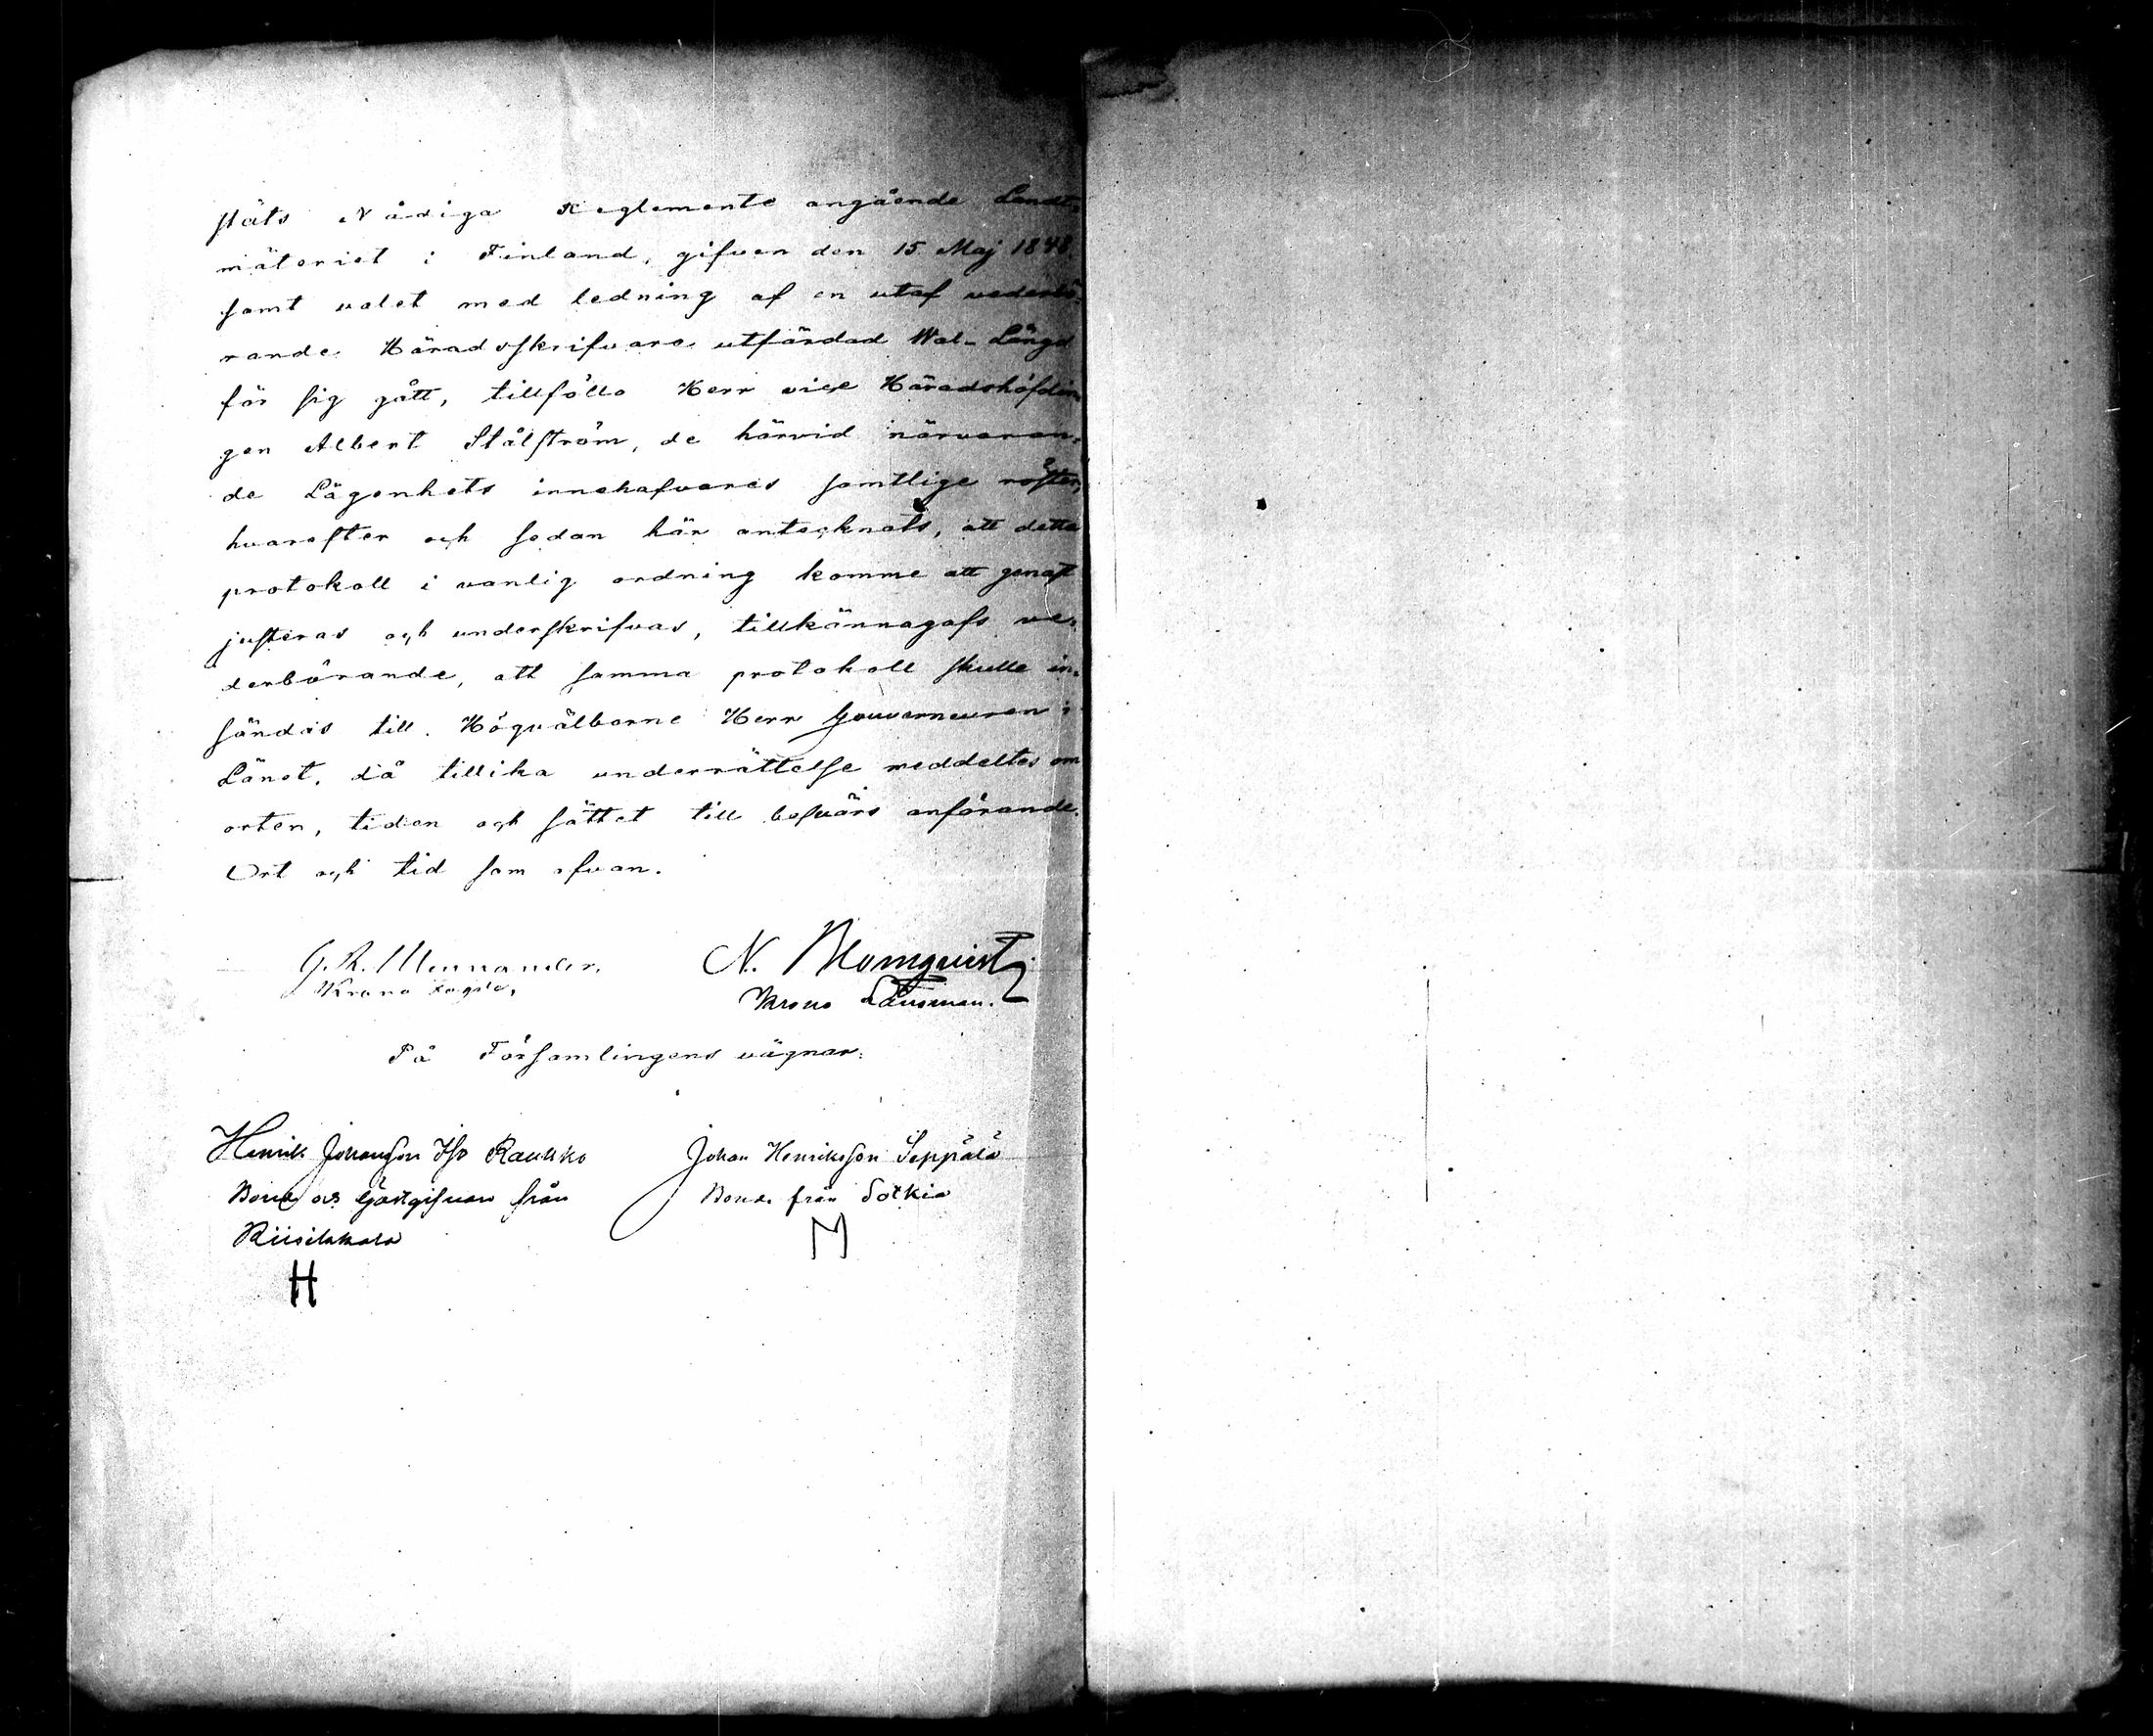 ställs Nådiga Reglemente angående Landt=
mäteriet i Finland, gifven den 15 Maj 1848
samt valet med ledning af en utaf vederbö=
rande Häradsskrifvare utfärdad Wal-Längd
för sig gått, tillföllo Herr vice Häradshöfdin=
gen Albert Stålström, de härvid närvaran=
de Lägenhets innehafvares samtlige röster,
hvarefter och sedan här antecknats, att detta
protokoll i vanlig ordning komme att genast
justeras och underskrifvas, tillkännagafs ve=
derbörande, att samma protokoll skulle in=
sändas till Högvälborne Herr Gouverneuren i
Länet, då tillika underrättelse meddeltes om
orten, tiden och sättet till besvärs anförande.
Ort och tid som ofvan.
G. R. Mennander, N. Blomqvist
Krono Fogde, Krono Länsman.
På Församlingens vägnar:
Henrik Johansson Iso Raukko Johan Henriksson Seppälä
Bonde och Gästgifvare från Bonde från Sotkia
Riisikkala M
H